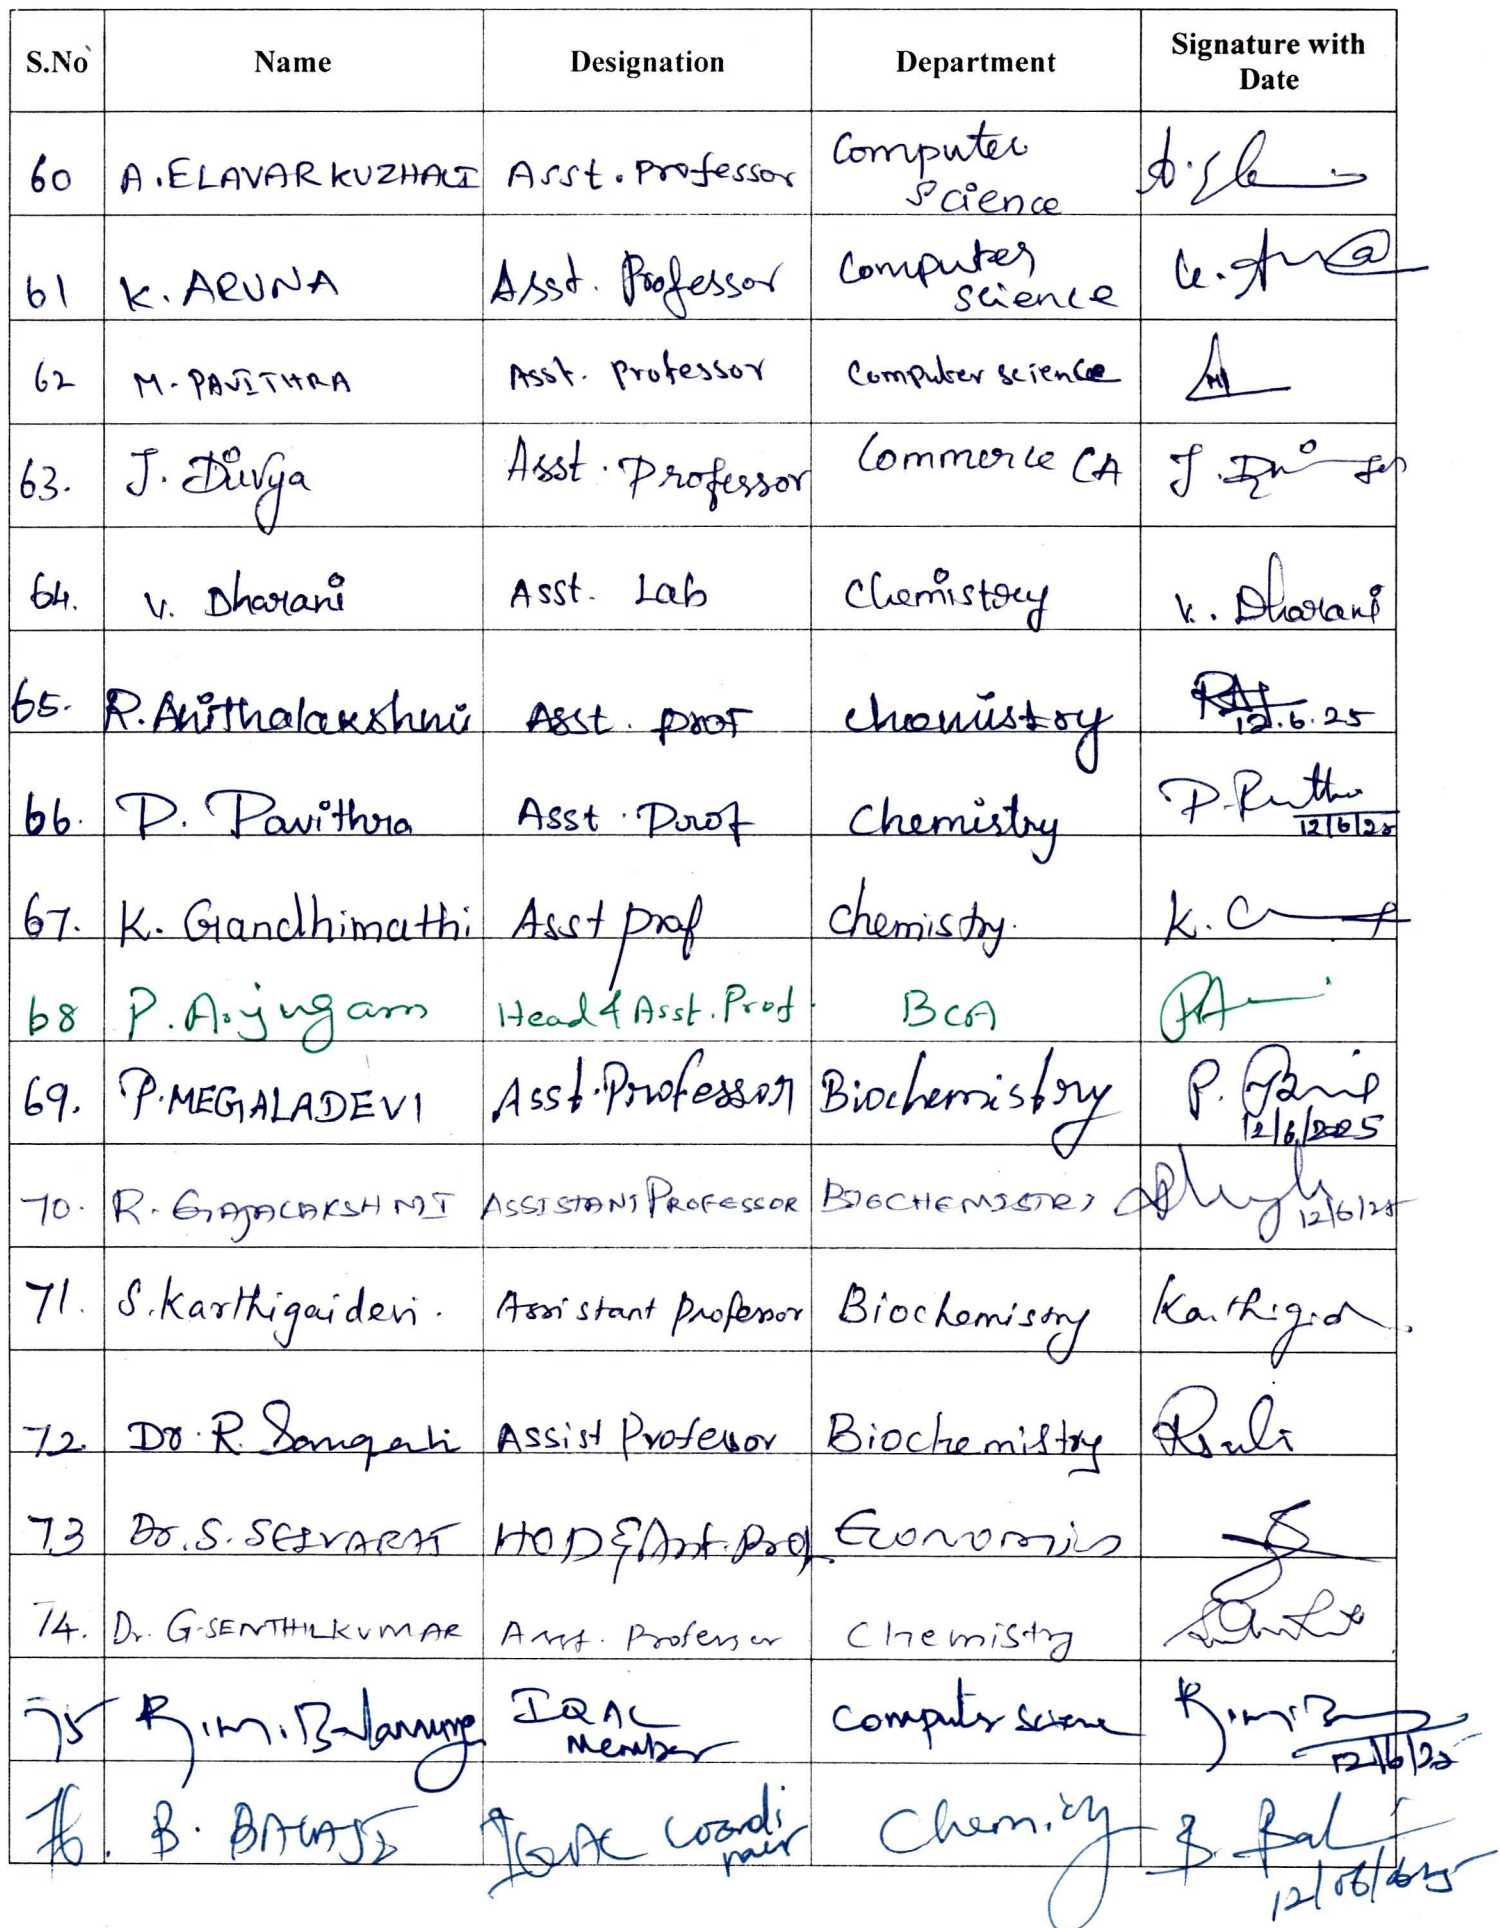 S.No Name Designation Department Signature with
Date
60 A. ELAVARKUZHALI Asst. Professor Computer
Science
61 K. ARUNA Asst. Professor Computer
science K. Aruna
62 M. PAVITHRA Asst. Professor Computer science
63. J. Divya Asst. Professor Commerce CA J.
64. V. Dharani Asst. Lab Chemistry V. Dharani
65. R. Anithalakshmi Asst. prof chemistry
12.6.25
66. P. Pavithra Asst. Prof Chemistry P.
12/6/25
67. K. Gandhimathi Asst prof Chemistry. K.
68 P. Arjugam Head & Asst. Prof. BCA
69. P. MEGALADEVI Asst. Professor Biochemistry P.
12/6/2025
70. R. GAJALAKSHMI ASSISTANT PROFESSOR BIOCHEMISTRY
12/6/25
71. S. Karthigaidevi. Assistant professor Biochemisry
72. Dr. R. Assist Professor Biochemistry
73 Dr. S. SELVARAJ HOD & Asst. Prof. Economics
74. Dr. G. SENTHILKUMAR Asst. Professor Chemistry
75 R. M. IQAC
Member Computer Science
12/6/25
76. B. BALAJI IQAC Coordi
nator B. Bal
12/06/2025